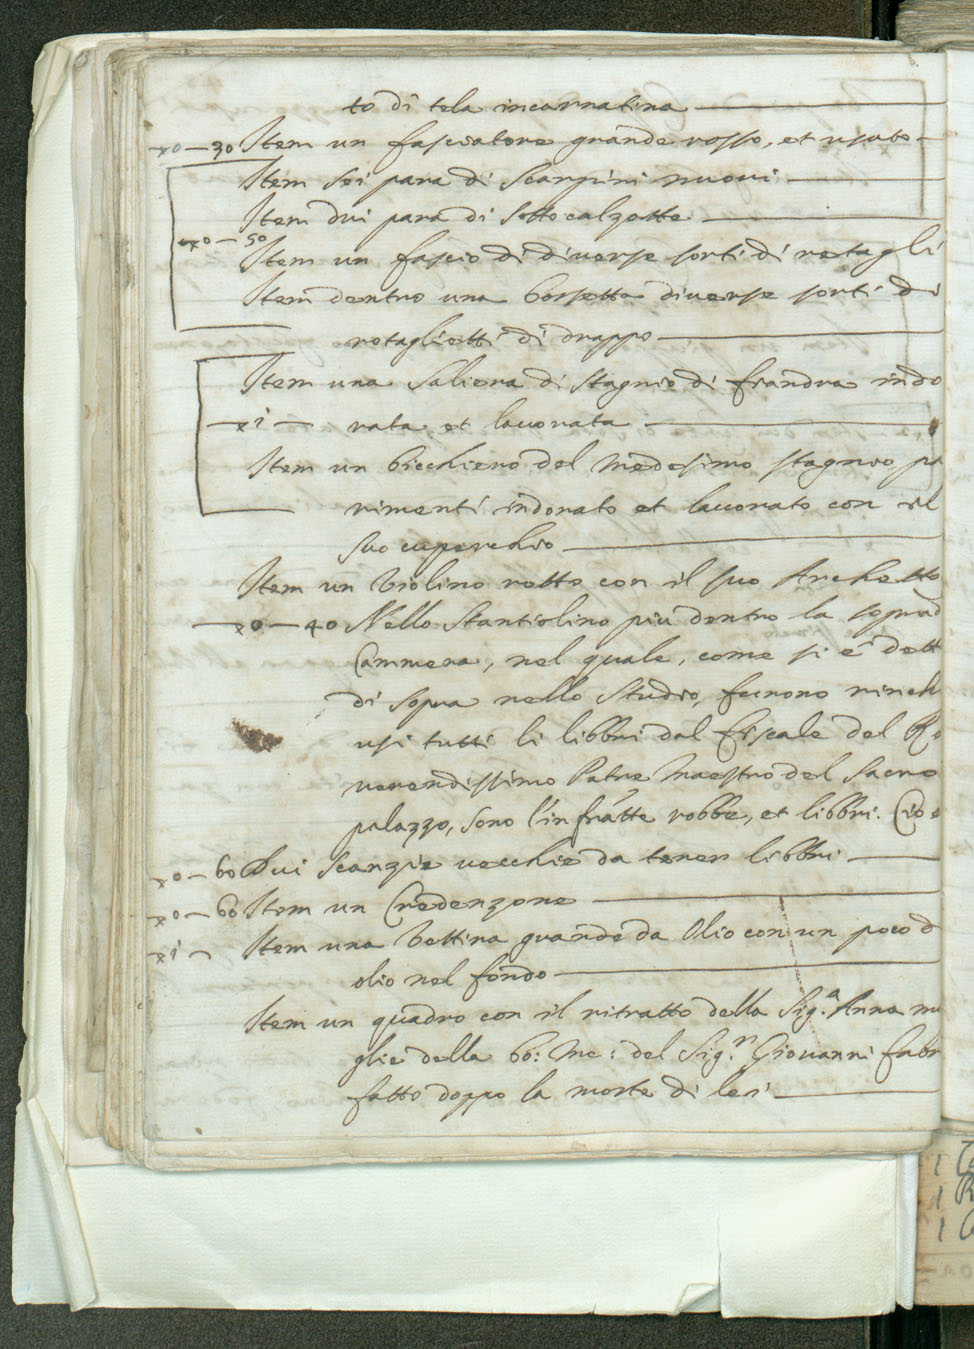 to di tela incarnatina
∇0—30 Item un fasciatore grande rosso, et usato
Item sei para di Scarpini nuovi
Item dui para di sotto calzette
∇0—50
Item un fascio di diverse sorti di retagli
Item dentro una borsetta diverse sorti di
retaglietti di drappo
Item una Saliera di stagnio di fiandra indo
∇1— rata et lavorata
Item un bicchiero del medesimo stagnio pa
rimenti indorato et lavorato con il
suo cuperchio
Item un Violino rotto con il suo Archetto
∇0—40 Nello Stantiolino più dentro la soprad
Cammera, nel quale, come si è dett
di sopra nello Studio, furono rinch
usi tutti li libbri dal fiscale del Re
verendissimo Patre Maestro del Sacro
palazzo, sono l'infratte robbe, et libbri. Cio e
∇0—60 Dui Scanzie vecchie da tener libbri
∇0—60 Item un Credenzone
∇1— Item una Vettina grande da Olio con un poco d
olio nel fondo
Item un quadro con il ritratto della Sig.a Anna mo
glie della bb: me: del Sig.r Giovanni fabr
fatto doppo la morte di lei